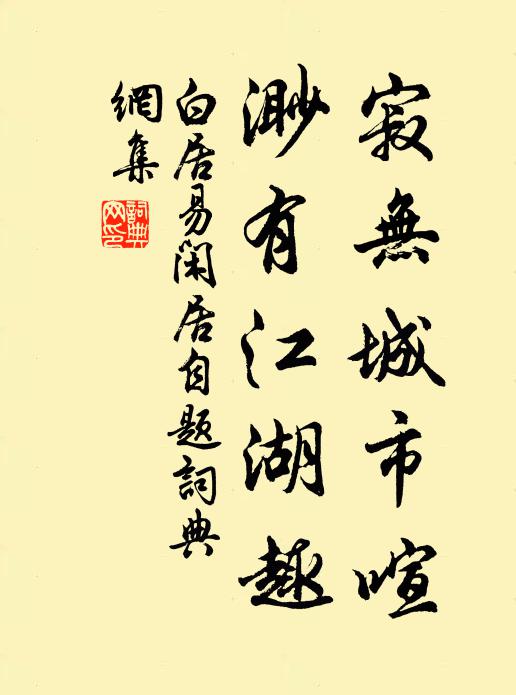 寂無城市喧
渺有江湖趣
白居易閑居自題詞典
網集
詞典
网印